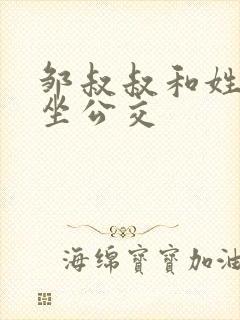 邹叔叔和姓
坐公交
海绵寶寶加油